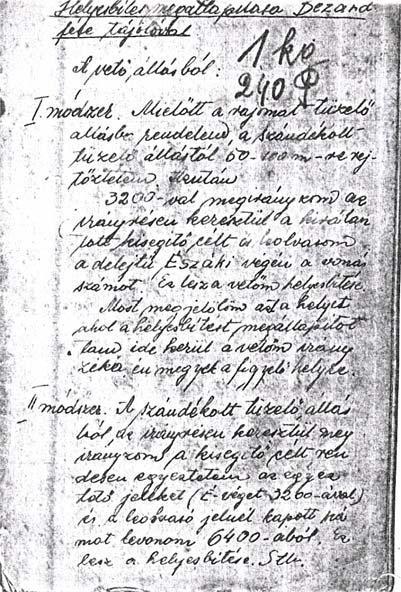 Helyesbítés megállapítása Bezárd-
féle tájolóval
A vető állásból:
1 ko
240
I módszer. Mielőtt a rajomat tüzelő
állásba rendelem, a szándékolt
tüzelő állástól 60-100m-re rej-
tőztetem. Azután
3200-val megirányzom az
irányrésen keresztül a kiválasz
tott kisegítő célt és leolvasom
a delejtű Északi végén a vonás
számot. Ez lesz a vetőm helyesbítése
Most megjelölöm azt a helyet
ahol a helyesbítést megállapítot
tam, ide kerül a vetőm irány
zéka én megyek a figyelő helyre.
II módszer. A szándékolt tüzelő állás
ból, az irányrésen keresztül meg
irányzom a kisegítő célt ren
desen egyeztetem az egyez
tető jeleket (É-véget 3200-ával)
és a leolvasó jelnél kapott szá
mot levonom 6400-ából. Ez
lesz a helyesbítés.